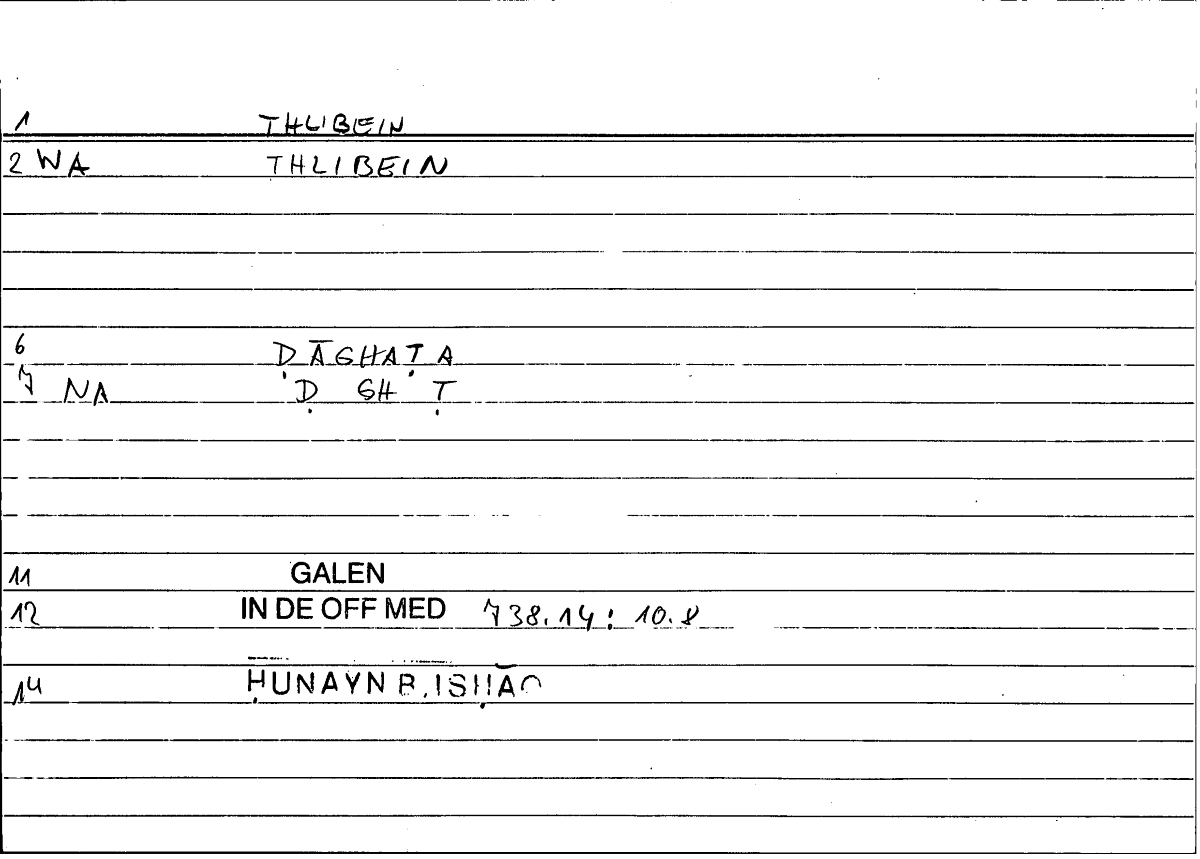 1 THLIBEIN
2 WA THLIBEIN
6 ḌĀGHAṬA
7 NA Ḍ GH Ṭ
11 GALEN
12 IN DE OFF MED 738.14: 10.8
14 ḤUNAYN B. ISḤĀQ